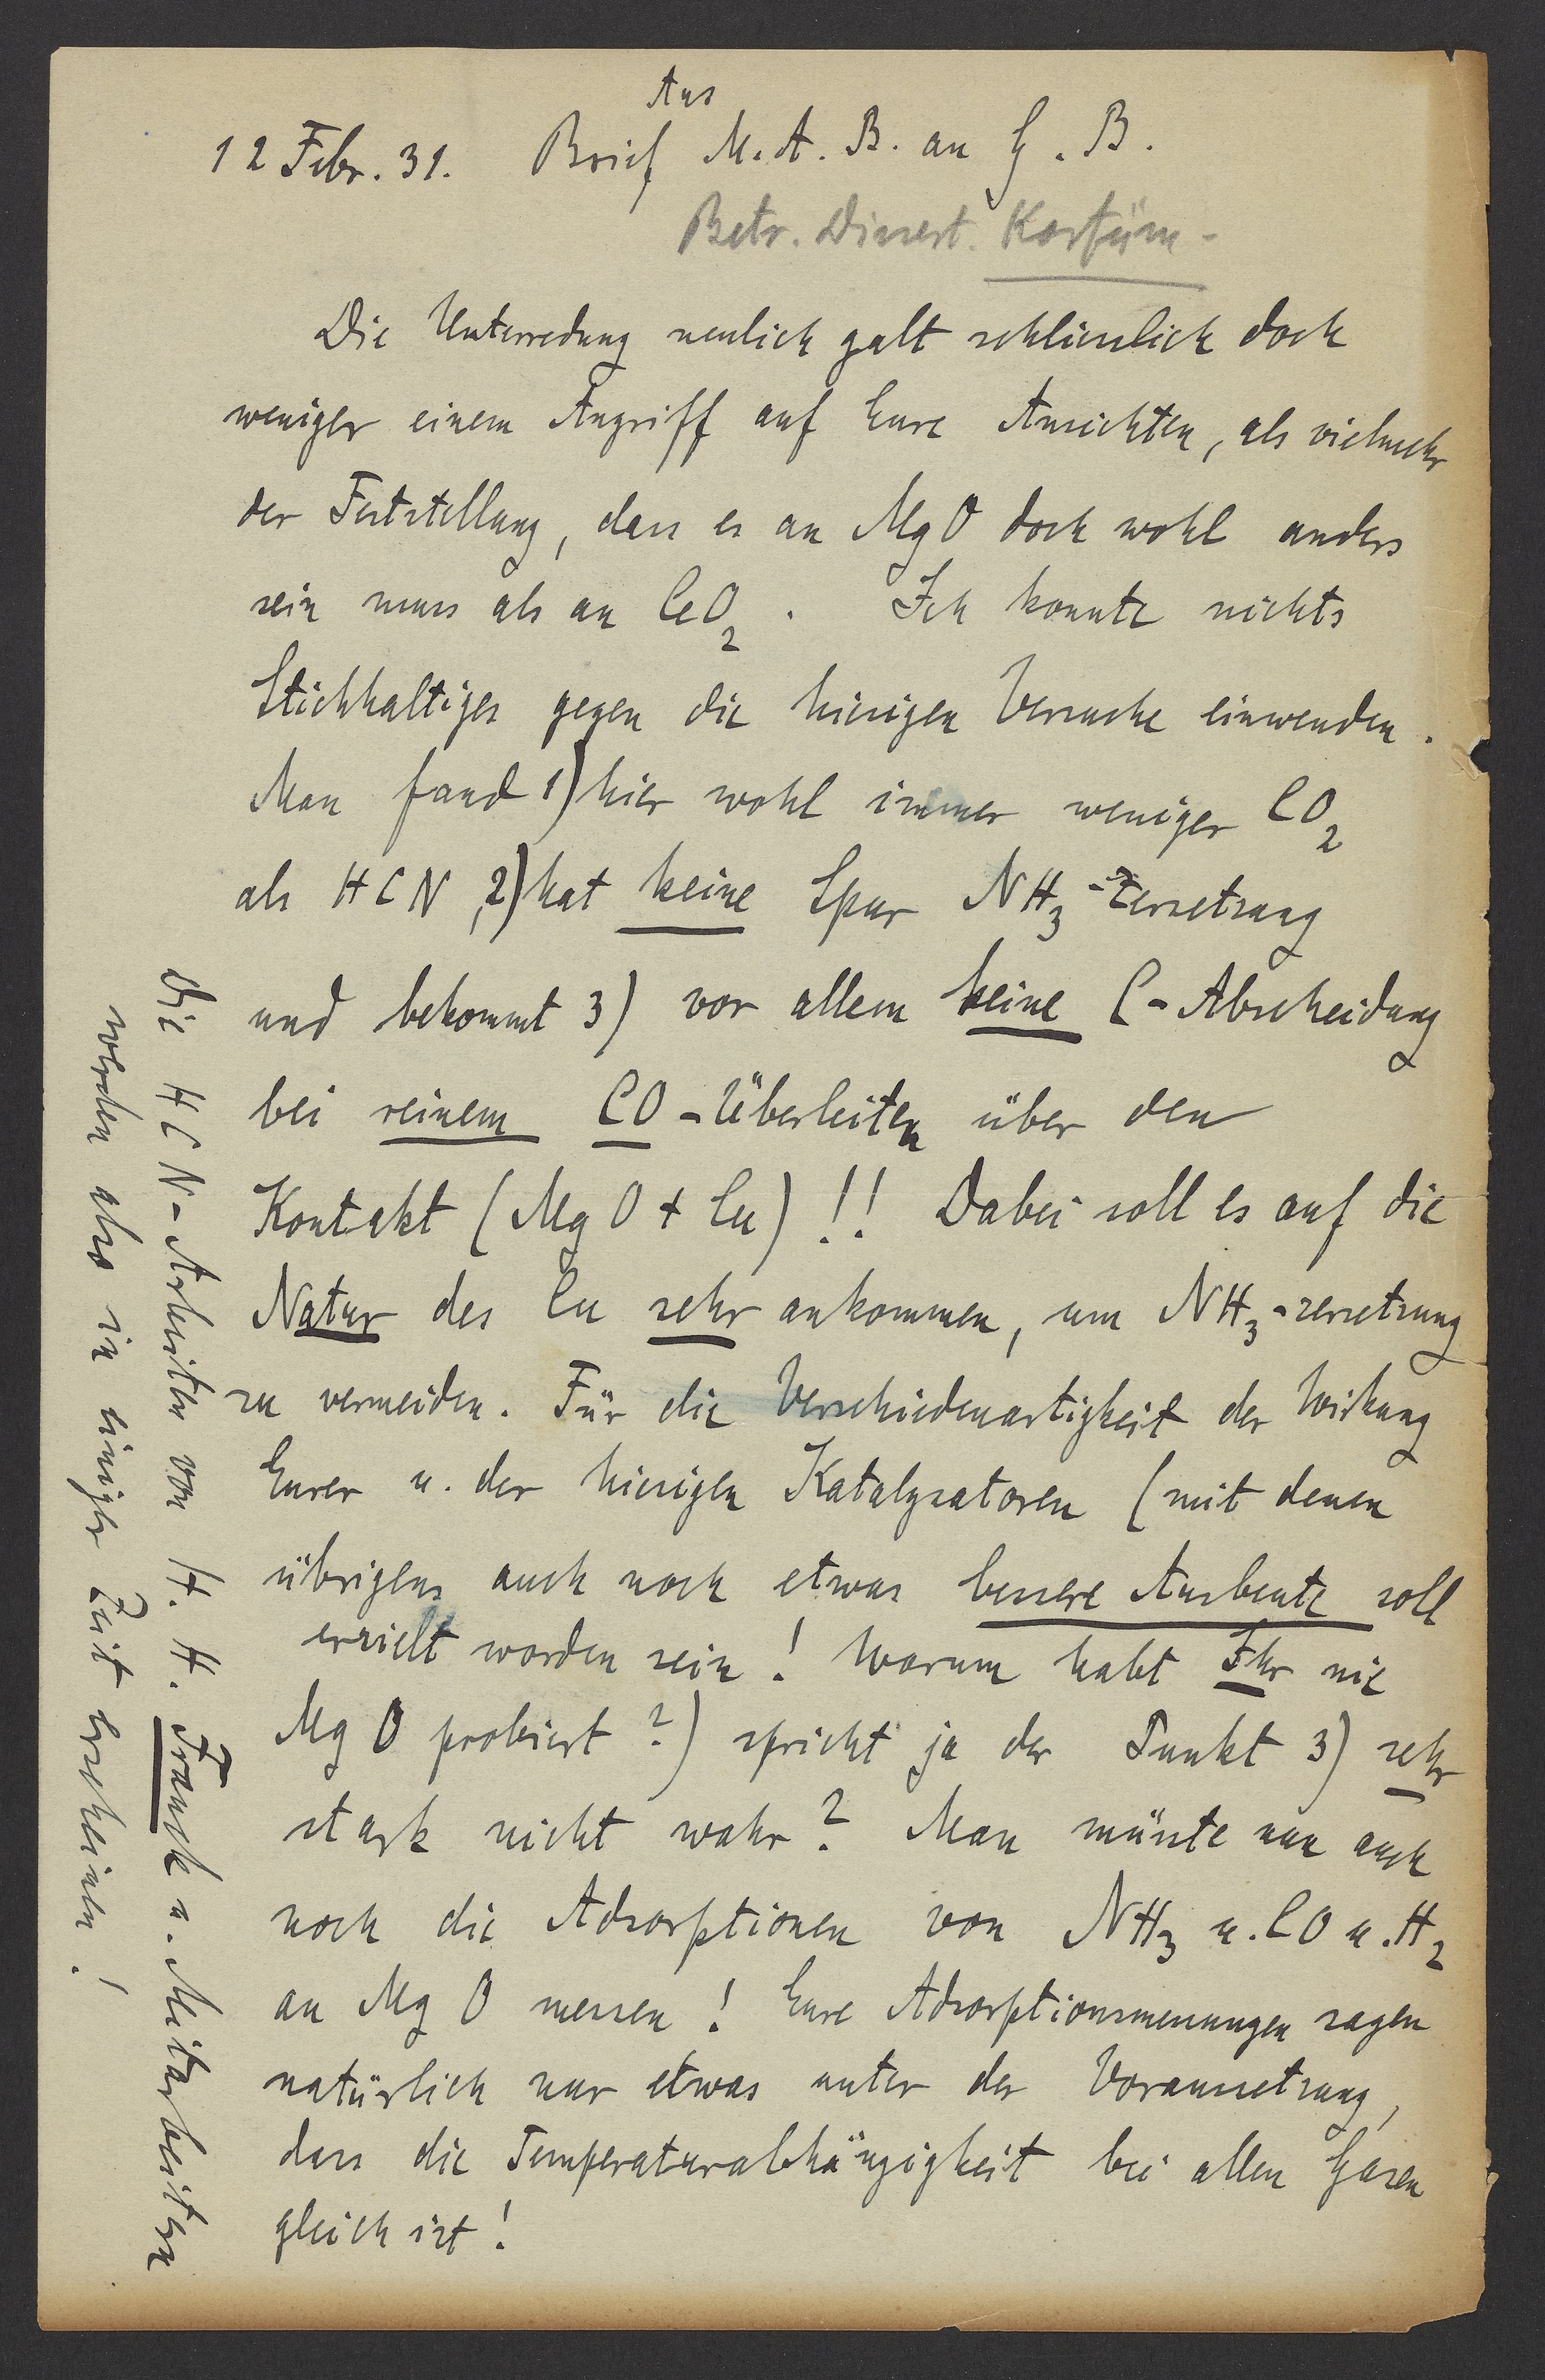 Aus
12 Febr. 31. Brief M. A. B. an G. B.
Betr. Dissert. Kortüm -
Die Unterredung neulich galt schliesslich doch
weniger einem Angriff auf Eure Ansichten, als vielmehr
der Feststellung, dass es an MgO doch wohl anders
sein muss als an CeO₂. Ich konnte nichts
Stichhaltiges gegen die hiesigen Versuche einwenden.
Man fand 1) hier wohl immer weniger CO₂
als HCN, 2) hat keine Spur NH₃-Zersetzung
und bekommt 3) vor allem keine C-Abscheidung
bei reinem CO-Überleiten über den
Kontakt (MgO + Cu)!! Dabei soll es auf die
Natur des Cu sehr ankommen, um NH₃-zersetzung
zu vermeiden. Für die Verschiedenartigkeit der Wirkung
Eurer u. der hiesigen Katalysatoren (mit denen
übrigens auch noch etwas bessere Ausbeute soll
erzielt worden sein! Warum habt Ihr nie
MgO probiert?) spricht ja der Punkt 3) sehr
stark nicht wahr? Man müsste nun auch
noch die Adsorptionen von NH₃ u. CO u. H₂
an MgO messen! Eure Adsorptionsmessungen sagen
natürlich nur etwas unter der Voraussetzung,
dass die Temperaturabhängigkeit bei allen Gasen
gleich ist!
Die HCN-Arbeiten von H. H. Franck u. Mitarbeitern
werden also in einiger Zeit erscheinen!